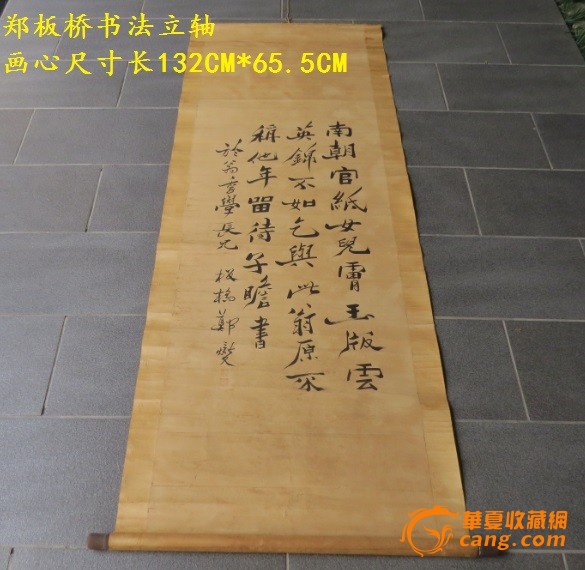 郑板桥书法立轴
画心尺寸长132CM*65.5CM
南朝官紙女兒膚玉版雲
英錦不如乞與此翁原不
稱他年留待子瞻書
翁學長兄 板橋鄭燮
華夏收藏網
cang.com